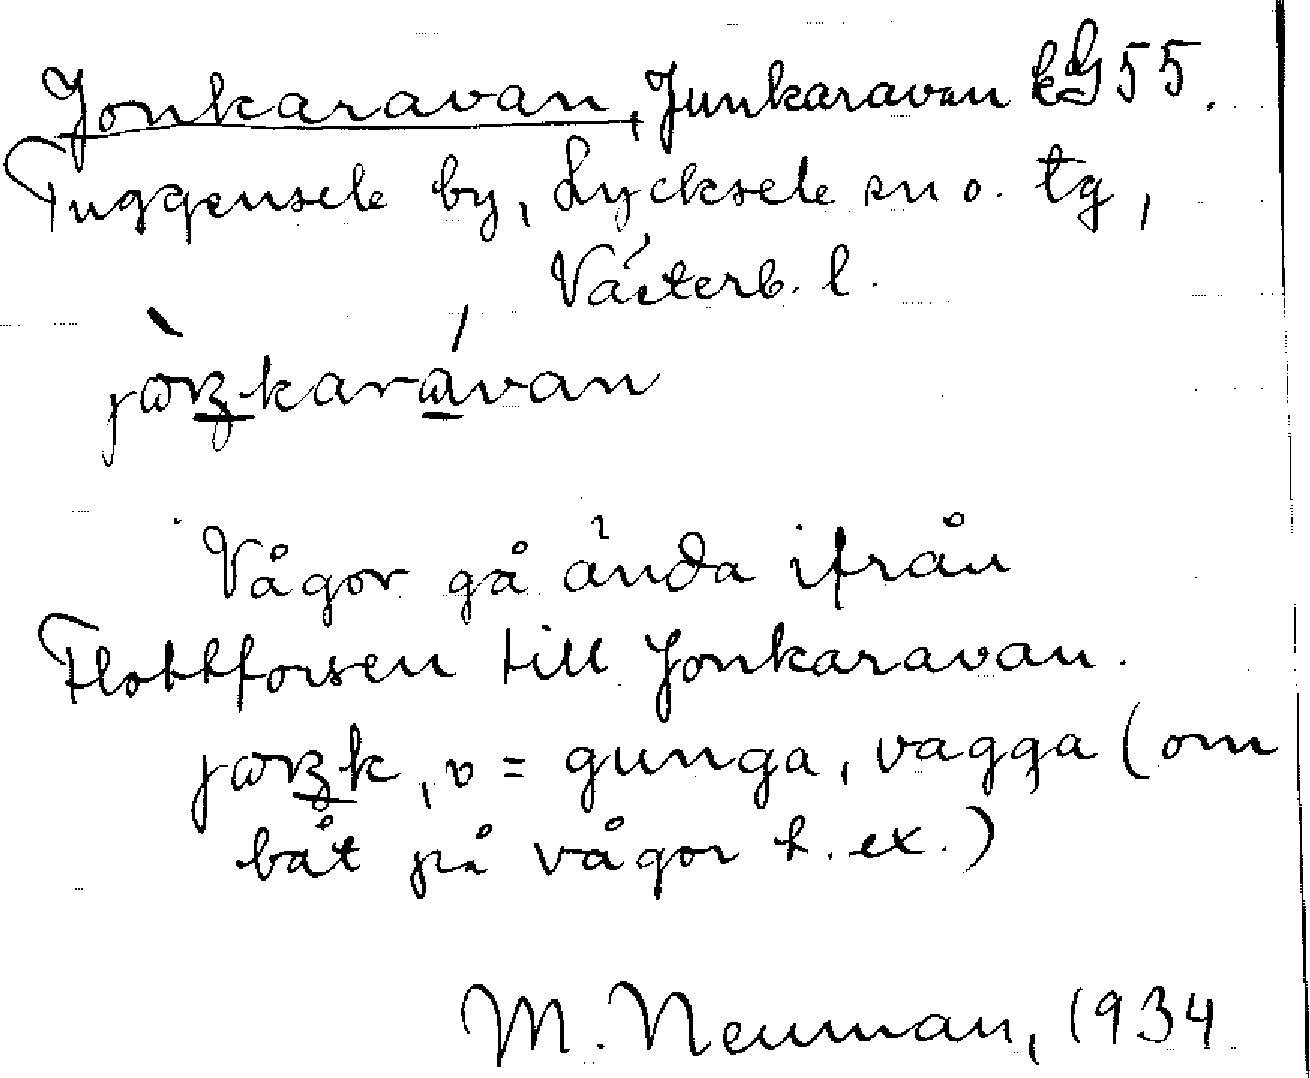 Jonkaravan, Junkaravan kG 55.
Tuggensele by, Lycksele sn o. tg,
Västerb. l.
Vågor gå ända ifrån
Flottforsen till Jonkaravan.
v = gunga, vagga (om
båt på vågor t. ex.)
M. Neuman, 1934